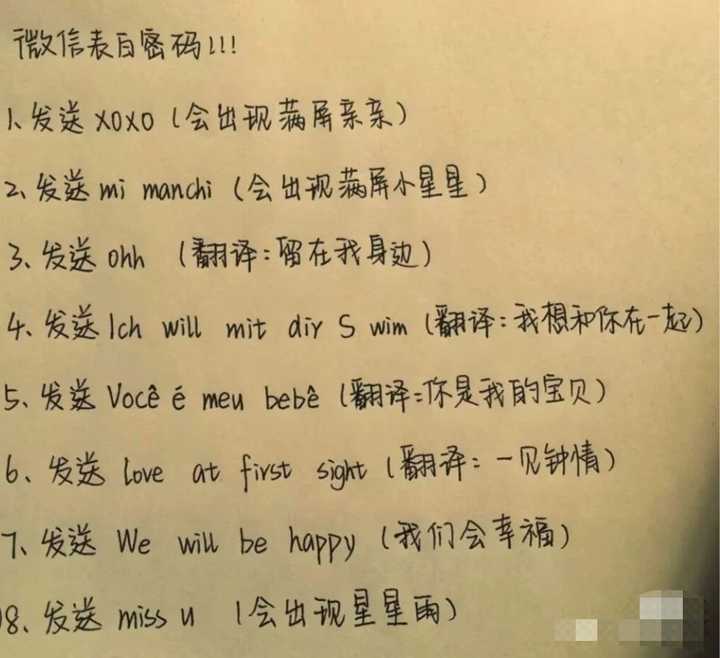 微信表白密码!!!
1、发送 xoxo (会出现满屏亲亲)
2、发送 mi manchi (会出现满屏小星星)
3、发送 ohh (翻译:留在我身边)
4、发送 Ich will mit dir S wim (翻译:我想和你在一起)
5、发送 Você é meu bebê (翻译:你是我的宝贝)
6、发送 love at first sight (翻译:一见钟情)
7、发送 We will be happy (我们会幸福)
8、发送 miss u (会出现星星雨)